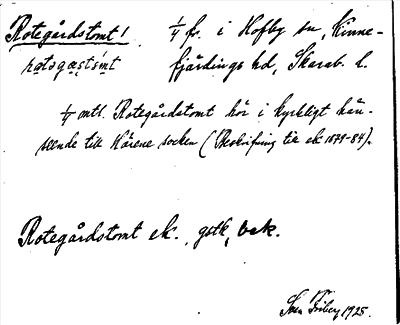 Rotegårdstomt! 1/4 fr. i Hofby sn, Kinne-
rotogastomt fjärdings hd, Skarab. l.
1/4 mtl. Rotegårdstomt hör i kyrkligt hän-
seende till Härene socken (Beskrifning till ek 1879-84).
Rotegårdstomt ek. gstk, bek.
Sven Friberg 1925.